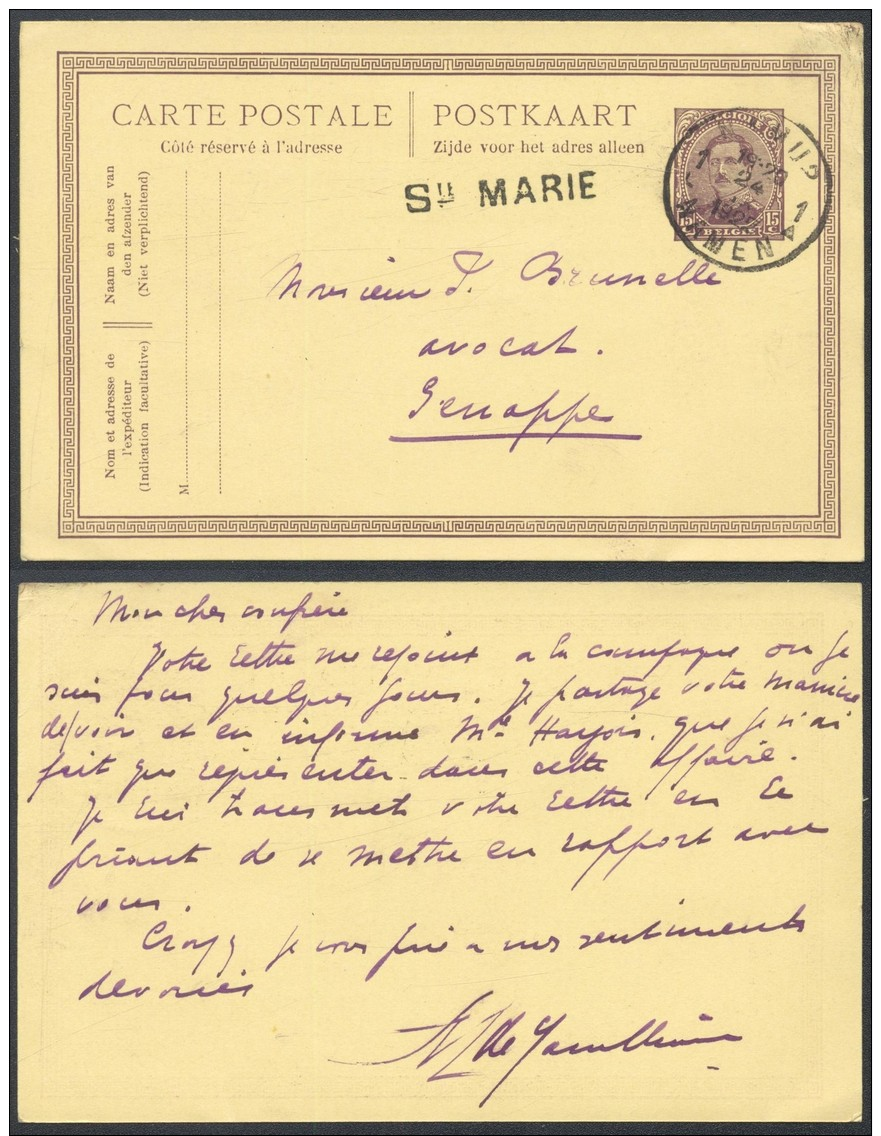 CARTE POSTALE
Côté réservé à l'adresse
POSTKAART
Zijde voor het adres alleen
Naam en adres van
den afzender
(Niet verplichtend)
Nom et adresse de
l'expéditeur
(Indication facultative)
M
STE MARIE
BELGIQUE
15 C 15 C
BELGIË
NAMEN
1
Monsieur J. Brunelle
avocat.
Genappe
Mon cher confrère
Votre lettre me rejoint à la campagne où je
suis pour quelques jours. Je partage votre manière
de voir et en informe Mr que je n'ai
fait que représenter dans cette affaire.
Je lui transmets votre lettre en le
priant de se mettre en rapport avec
vous.
Croyez je vous prie à mes sentiments
dévoués